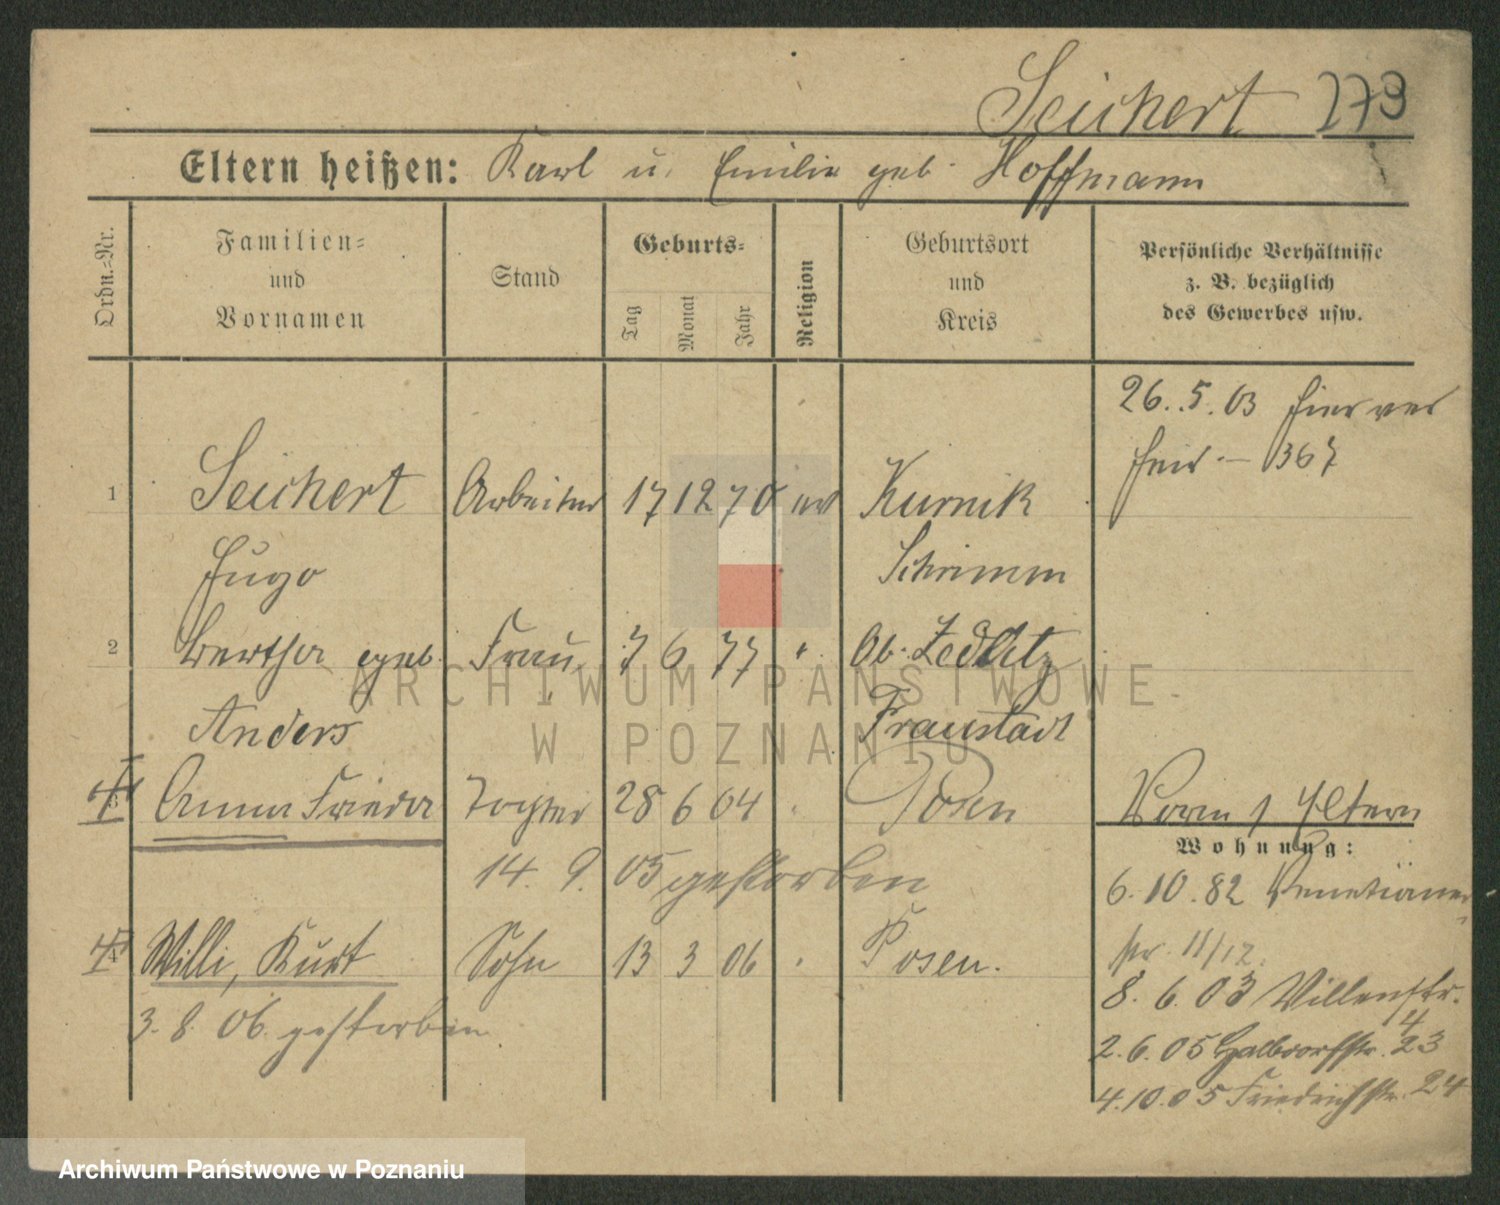 Seichert 273
Eltern heißen: Karl u. Emilie geb. Hoffmann
Ordn.-Nr.
Familien- und Vornamen
Stand
Geburts-
Tag Monat Jahr
Religion
Geburtsort und Kreis
Persönliche Verhältnisse
z. B. bezüglich
des Gewerbes usw.
26. 5. 03 hier ver
heir. — 367
1 Seichert Arbeiter 17 12 70 ev Kurnik
Hugo Schrimm
2 Bertha geb. Frau 7 6 77 " Ob. Zedlitz
Anders Fraustadt
3 Anna Frieda Tochter 28 6 04 " Posen
14. 9. 05 gestorben
4 Willi, Kurt Sohn 13 3 06 " Posen.
3. 8. 06. gestorben
Eltern
Wohnung:
6. 10. 82 Venetianer-
str. 11/12.
8. 6. 03 Villenstr.
4
2. 6. 05 23
4. 10. 05 Friedrichstr. 24
ARCHIWUM PAŃSTWOWE
W POZNANIU
Archiwum Państwowe w Poznaniu